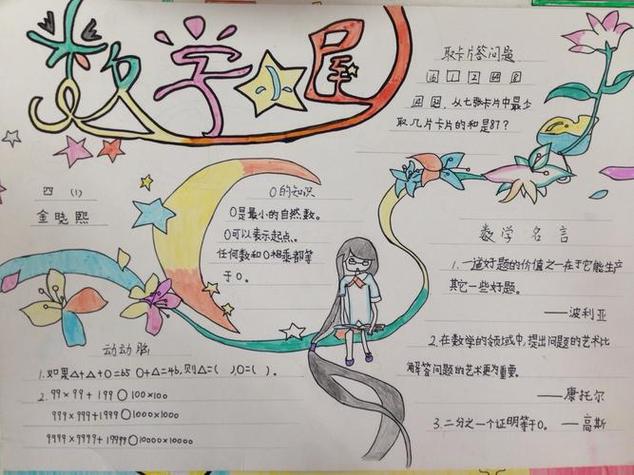 数学小屋
四 （1）
金晓熙
0的知识
0是最小的自然数。
0可以表示起点。
任何数和0相乘都等
于0。
取卡片答问题
1 2
从七张卡片中最少
取几片卡片的和是87?
数学名言
1.一道好题的价值之一在于它能生产
其它一些好题。
——波利亚
2.在数学的领域中,提出问题的艺术比
解答问题的艺术更为重要。
——康托尔
3.二分之一个证明等于0。 —高斯
动动脑
1.如果△+△+○=65 ○+△=46,则△=( ),○=( )。
2. 99×99+199○100×100
999×999+1999○1000×1000
9999×9999+19999○10000×10000